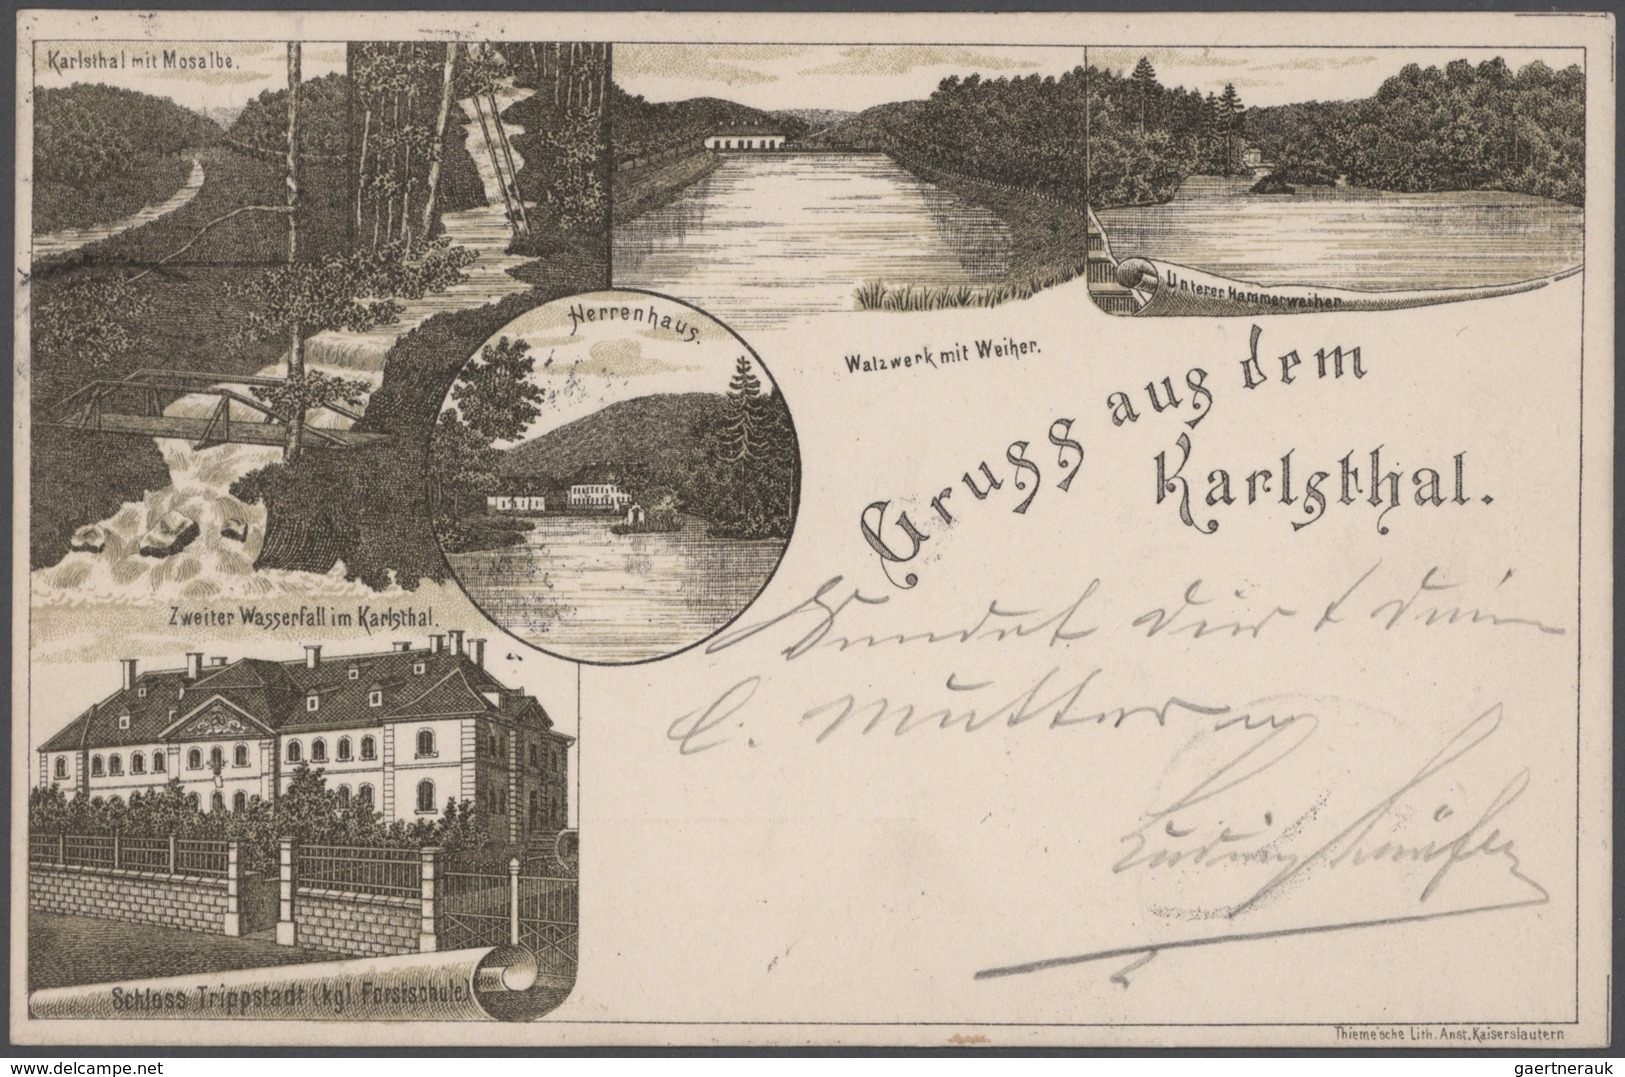 Karlsthal mit Mosalbe.
Herrenhaus.
Walzwerk mit Weiher.
Unterer Hammerweiher
Gruss aus dem
Karlsthal.
Zweiter Wasserfall im Karlsthal.
Sendet dir
Mutter
Ludwig
Schloss Trippstadt (kgl. Forstschule)
Thieme'sche Lith. Anst. Kaiserslautern
www.delcampe.net
gaertnerauk